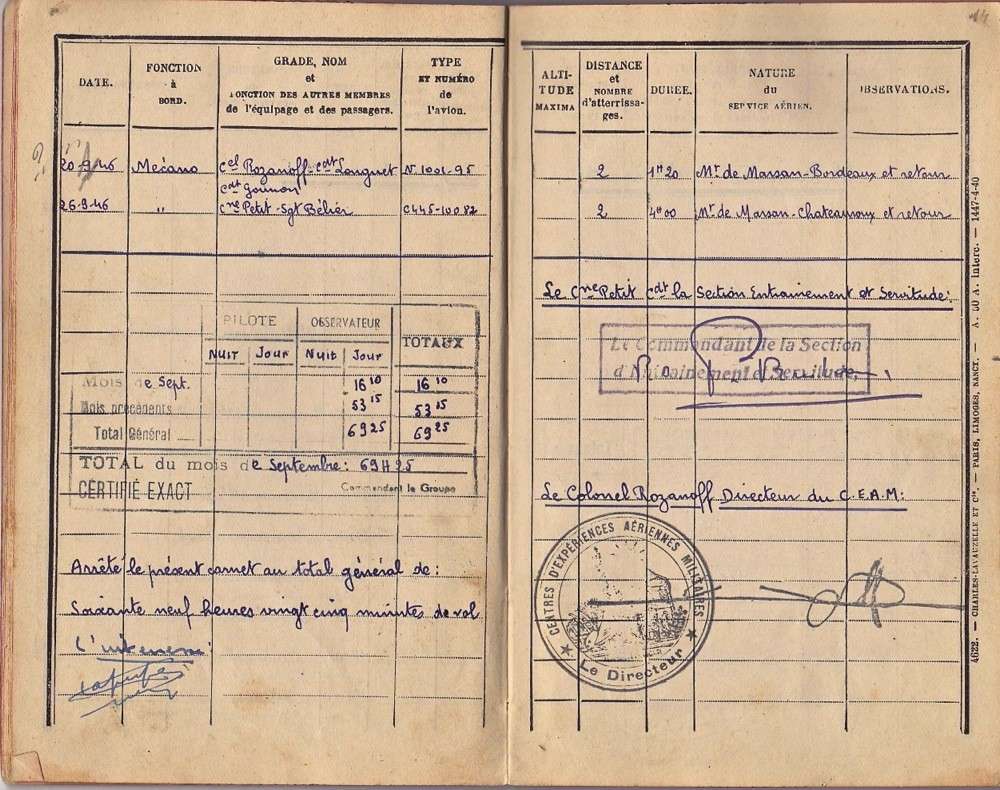 14
DATE.
FONCTION
à
BORD.
GRADE, NOM
et
FONCTION DES AUTRES MEMBRES
de l'équipage et des passagers.
TYPE
ET NUMÉRO
de
l'avion.
20-9-46 Mécano Cel Rozanoff-Cdt Longuet N. 1001-95
Cdt Gounon
26-9-46 " Cne Petit-Sgt Bélier C445-10082
PILOTE OBSERVATEUR TOTAUX
NUIT Jour Nuit Jour
Mois de Sept. 16 10 16 10
Mois précédents 53 15 53 15
Total Général 69 25 69 25
TOTAL du mois de Septembre: 69H25
CERTIFIÉ EXACT Commandant le Groupe
Arrêté le présent carnet au total général de:
Soixante neuf heures vingt cinq minutes de vol
ALTI-
TUDE
MAXIMA
DISTANCE
et
NOMBRE
d'atterrissa-
ges.
DURÉE.
NATURE
du
SERVICE AÉRIEN.
OBSERVATIONS.
2 1H20 Mt de Marsan-Bordeaux et retour
2 4H00 Mt de Marsan-Chateauroux et retour
Le Cne Petit Cdt la Section Entrainement et Servitude:
Le Commandant de la Section
d'Entrainement et Servitude,
Le Colonel Rozanoff Directeur du C.E.A.M:
CENTRES D'EXPÉRIENCES AÉRIENNES MILITAIRES
Le Directeur
4622. — CHARLES-LAVAUZELLE ET Cie. — PARIS, LIMOGES, NANCY. — A. 50 A. Interc. — 1447-4-40